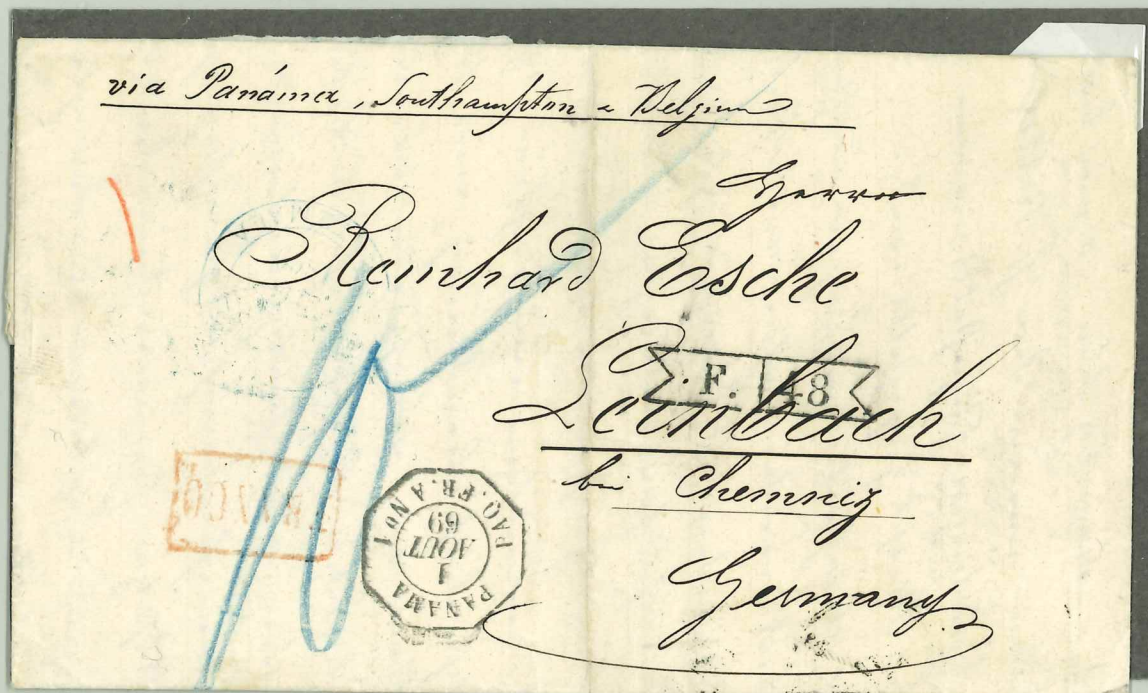 via Panáma, Southampton & Belgium
Herrn
Reinhard Esche
F. 48
Leinbach
bei Chemniz
FRANCO
PANAMA
1
AOUT
69
PAQ. FR. A No 1
Germany